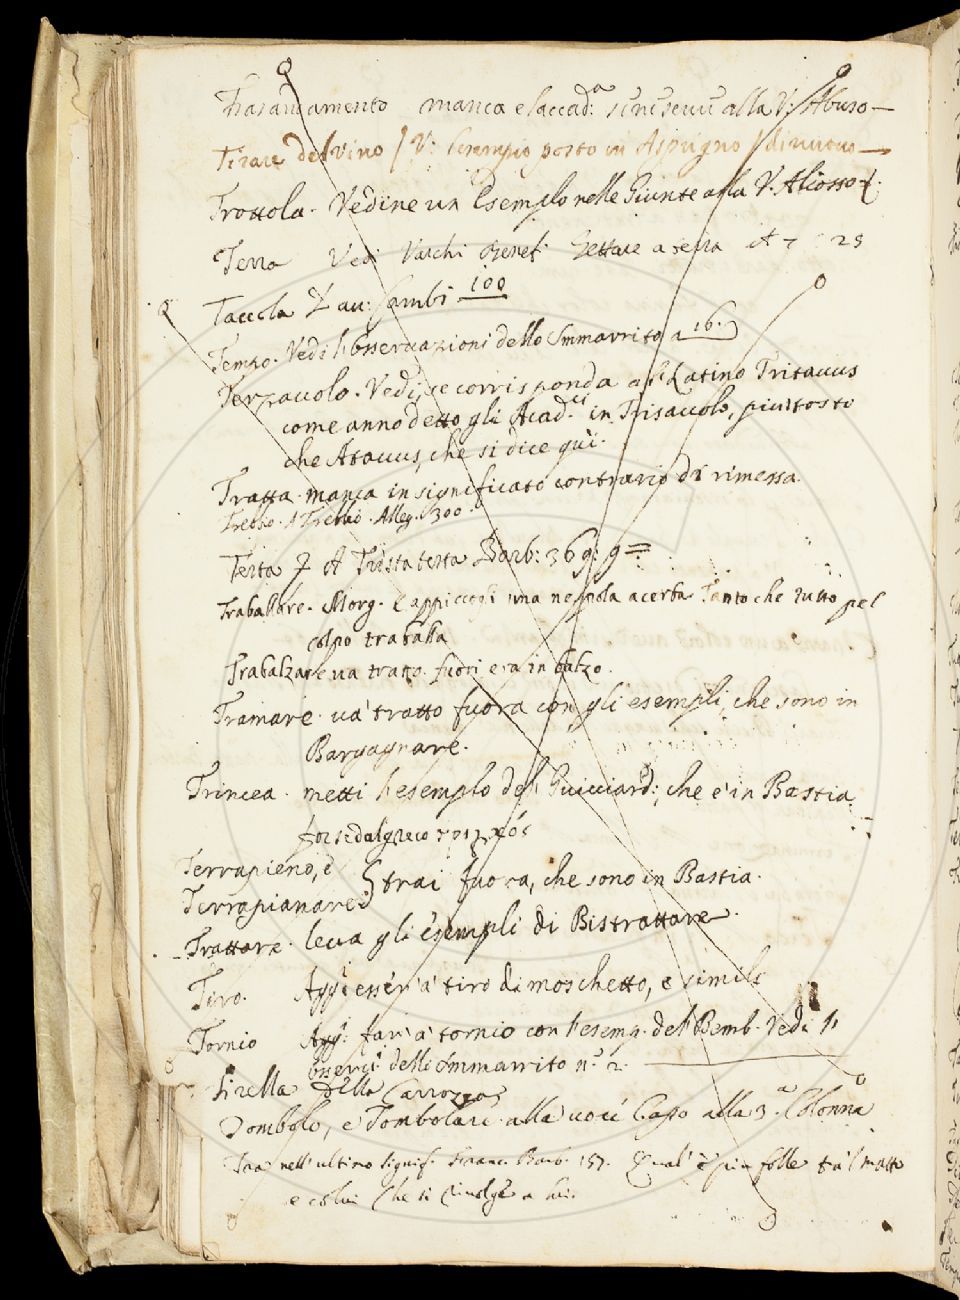 Trasandamento manca e l'accad.a se ne servì alla V. Abuso —
Tirare del Vino / V: Esempio posto in Asprigno /
Trottola. Vedine un Esempio nelle Giunte alla V. Aliosso
Terra Vedi Varchi Benef. Gettare a terra
Taccola Lau: Cambi 100
Tempo. Vedi l'osservazioni dello Smmarrito a 16.
Terzavolo. Vedi, se corrisponda a il Latino Tritavus
come anno detto gli Acad.ci in Trisavolo, piu tosto
che Atavus, che si dice qui.
Tratta. manca in significato contrario di rimessa.
Trebbio. Alleg. 300.
Testa A Trista testa Barb: 369: 9
Traballare. Morg. E appiccogli una nespola acerba Tanto che tutto pel
colpo traballa
Trabalzare va tratto fuori era in balzo.
Trainare. va' tratto fuora con gli esempli, che sono in
Bargagnare.
Trincea. metti l'esemplo del Guicciard:, che e' in Bastia.
forse dal greco
Terrapieno, e
Terrapianare trai fuora, che sono in Bastia.
Trattare. leva gli esempli di Bistrattare.
Tiro. Aggi esser a' tiro di moschetto, e simile
Tornio Agg: far' a' tornio con l'esemp. del Bemb. Vedi l'
osserv: dello Smmarrito n.° 2.
Tirella della Carrozza
Tombolo, e Tombolare alla voce Capo alla 3.a Colonna
nell'ultimo signif. Franc. Barb. 157. Qual' è piu folle fa'l matto
e colui Che si rivolge a lui.